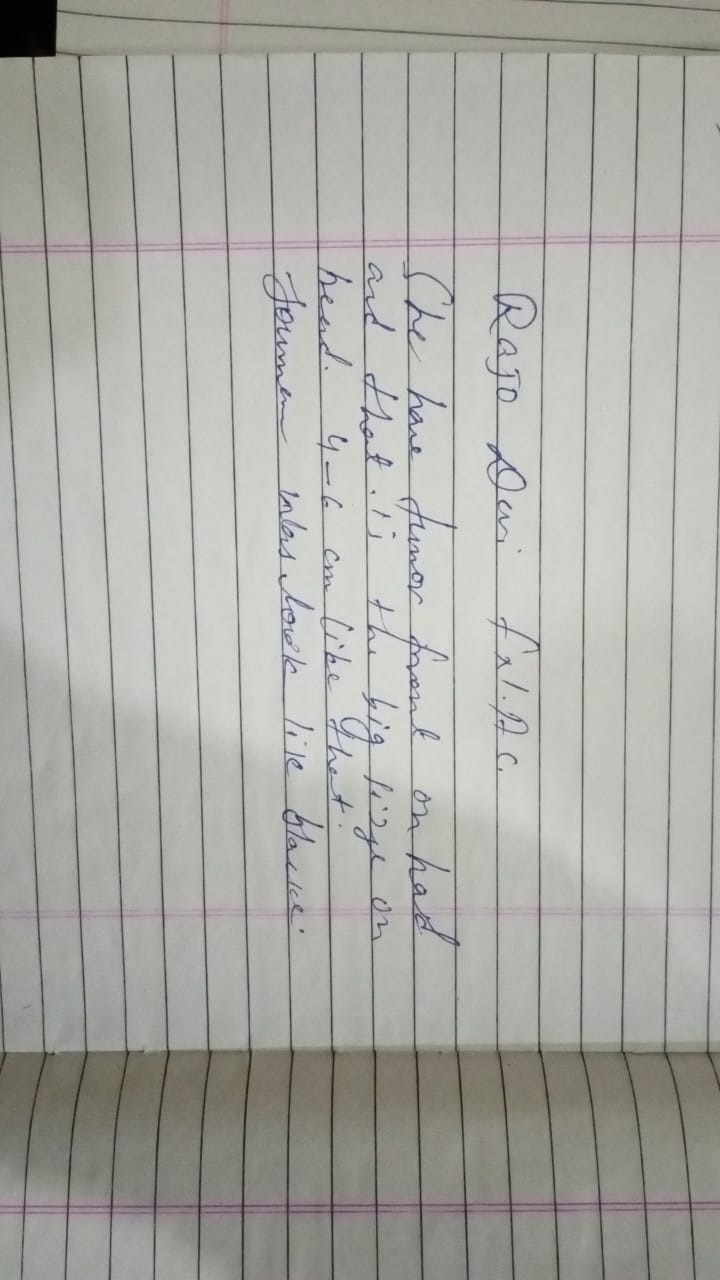 Rajo Devi
She have tumor front on had
and that. is the big size on
head. 4-6 cm like that.
look like black.